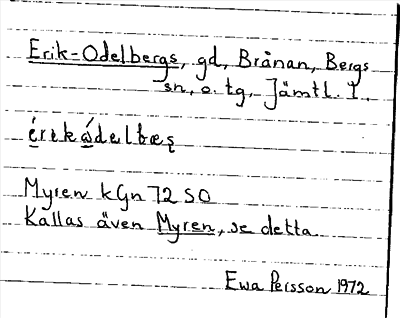 Erik-Odelbergs, gd, Brånan, Bergs
sn, o. tg, Jämtl. l.
Myren kGn 72 SO
Kallas även Myren, se detta
Ewa Persson 1972